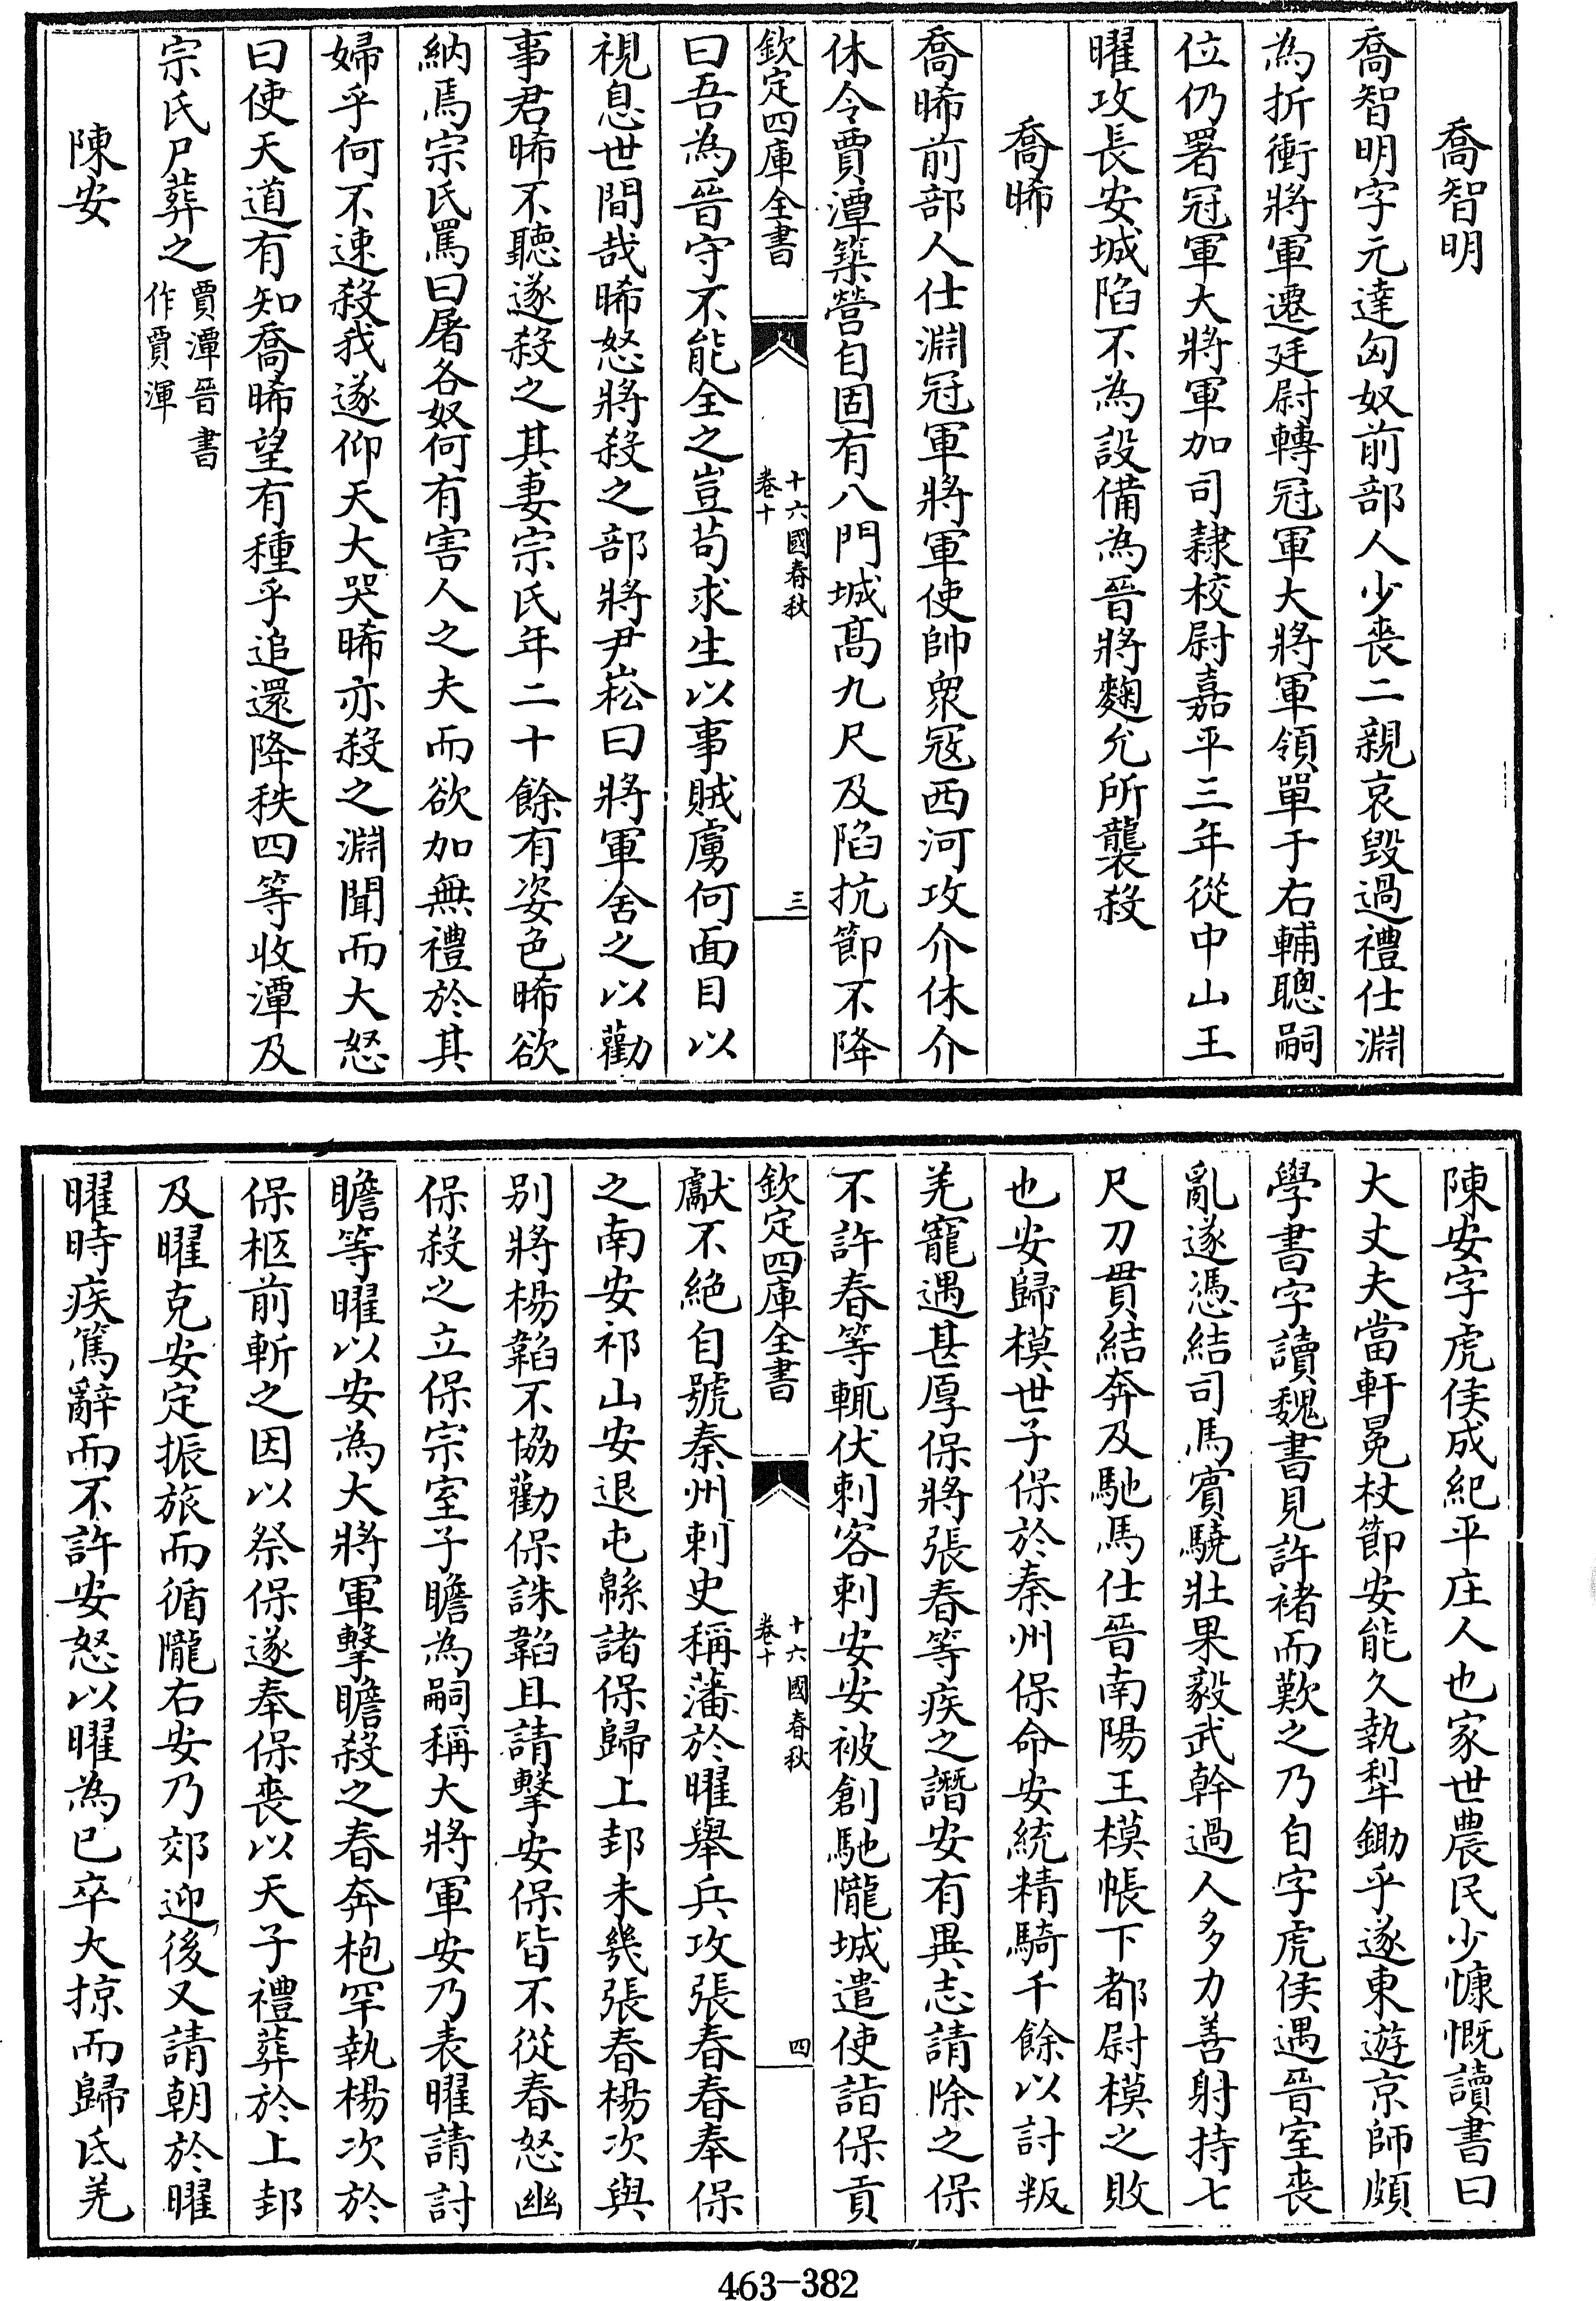 喬智明
喬智明字元達匈奴前部人少喪二親哀毀過禮仕淵
為折衝將軍遷廷尉轉冠軍大將軍領單于右輔聰嗣
位仍署冠軍大將軍加司隸校尉嘉平三年從中山王
曜攻長安城陷不為設備為晉將麴允所襲殺
喬晞
喬晞前部人仕淵冠軍將軍使帥衆寇西河攻介休介
休令賈潭築營自固有八門城髙九尺及陷抗節不降
欽定四庫全書
十六國春秋
卷十
三
曰吾為晉守不能全之豈苟求生以事賊虜何面目以
視息世間哉晞怒將殺之部將尹崧曰將軍舍之以勸
事君晞不聽遂殺之其妻宗氏年二十餘有姿色晞欲
納焉宗氏罵曰屠各奴何有害人之夫而欲加無禮於其
婦乎何不速殺我遂仰天大哭晞亦殺之淵聞而大怒
曰使天道有知喬晞望有種乎追還降秩四等收潭及
宗氏尸葬之
賈潭晉書
作賈渾
陳安
陳安字虎侯成紀平庄人也家世農民少慷慨讀書曰
大丈夫當軒冕杖節安能久執犁鋤乎遂東遊京師頗
學書字讀魏書見許褚而歎之乃自字虎侯遇晉室喪
亂遂憑結司馬賓驍壯果毅武幹過人多力善射持七
尺刀貫結奔及馳馬仕晉南陽王模帳下都尉模之敗
也安歸模世子保於秦州保命安統精騎千餘以討叛
羌寵遇甚厚保將張春等疾之譖安有異志請除之保
不許春等輒伏刺客刺安安被創馳隴城遣使詣保貢
欽定四庫全書
十六國春秋
卷十
四
獻不絕自號秦州刺史稱藩於曜舉兵攻張春春奉保
之南安祁山安退屯緜諸保歸上邽未幾張春楊次與
别將楊韜不協勸保誅韜且請擊安保皆不從春怒幽
保殺之立保宗室子瞻為嗣稱大將軍安乃表曜請討
瞻等曜以安為大將軍擊瞻殺之春奔枹罕執楊次於
保柩前斬之因以祭保遂奉保喪以天子禮葬於上邽
及曜克安定振旅而循隴右安乃郊迎後又請朝於曜
曜時疾篤辭而不許安怒以曜為已卒大掠而歸氐羌
463-382